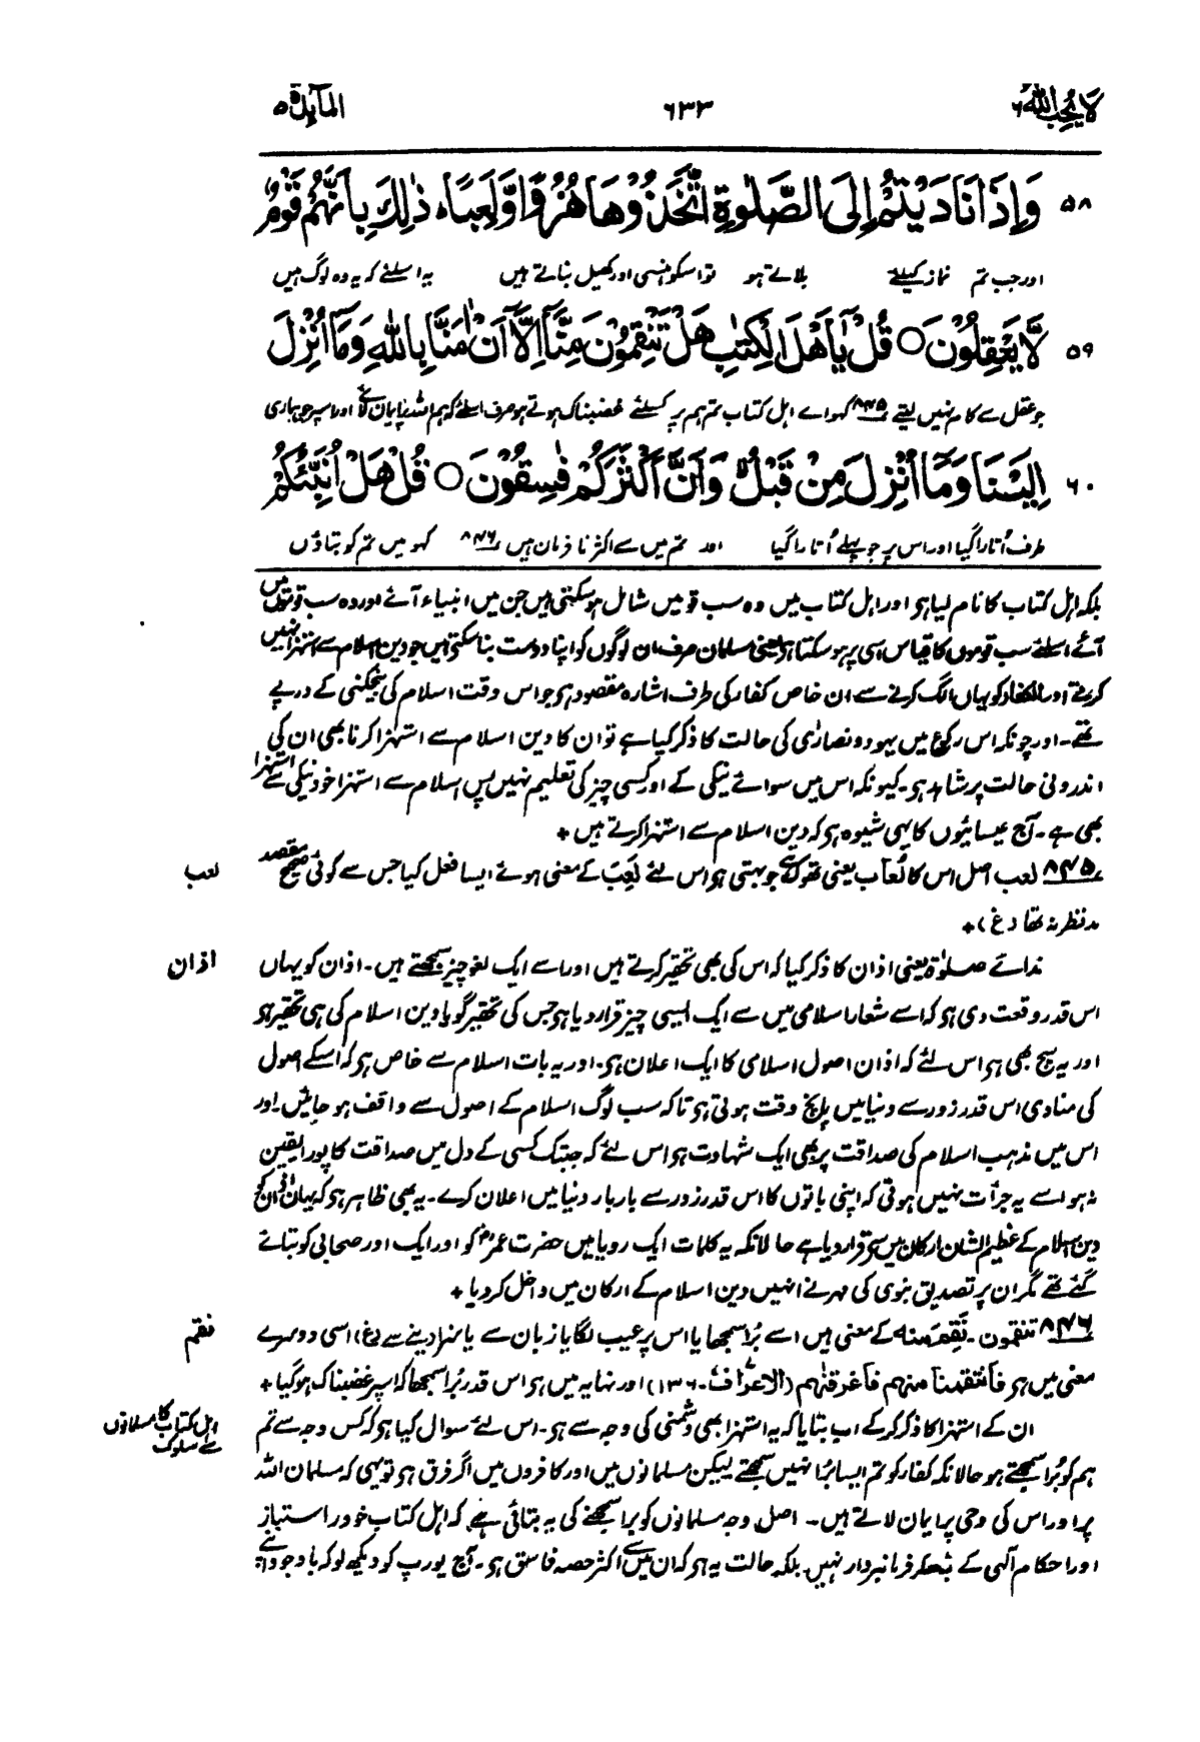 لَا یُحِبُّ اللّٰهُ ۶
۶۳۳
المآئدة ۵
۵۸ وَاِذَا نَادَيْتُمْ اِلَى الصَّلٰوةِ اتَّخَذُوْهَا هُزُوًا وَّلَعِبًا ؕ ذٰلِكَ بِاَنَّهُمْ قَوْمٌ
اور جب تم نماز کیلئے بلاتے ہو تو اسکو ہنسی اور کھیل بناتے ہیں یہ اسلئے کہ یہ وہ لوگ ہیں
۵۹ لَّا يَعْقِلُوْنَ ○ قُلْ يٰۤاَهْلَ الْكِتٰبِ هَلْ تَنْقِمُوْنَ مِنَّاۤ اِلَّاۤ اَنْ اٰمَنَّا بِاللّٰهِ وَمَاۤ اُنْزِلَ
جو عقل سے کام نہیں لیتے ۸۴۵ کہو اے اہل کتاب تم ہم پر کسلئے غضبناک ہوتے ہو صرف اسلئے کہ ہم اللہ پر ایمان لائے اور اسپر جو ہماری
۶۰ اِلَيْنَا وَمَاۤ اُنْزِلَ مِنْ قَبْلُ ۙ وَاَنَّ اَكْثَرَكُمْ فٰسِقُوْنَ ○ قُلْ هَلْ اُنَبِّئُكُمْ
طرف اُتارا گیا اور اس پر جو پہلے اُتارا گیا اور تم میں سے اکثر نافرمان ہیں ۸۴۶ کہو میں تم کو بتاؤں
بلکہ اہل کتاب کا نام لیا ہو اور اہل کتاب میں وہ سب قومیں شامل ہو سکتی ہیں جن میں انبیاء آئے اور وہ سب قوموں میں
آئے اسلئے سب قوموں کا قیاس اسی پر ہو سکتا ہو یعنی مسلمان صرف ان لوگوں کو اپنا دوست بنا سکتے ہیں جو دین اسلام سے استہزا نہیں
کرتے اور الکفار کو یہاں الگ کرنے سے ان خاص کفار کی طرف اشارہ مقصود ہو جو اس وقت اسلام کی بیخکنی کے درپے
تھے۔ اور چونکہ اس رکوع میں یہود و نصارٰی کی حالت کا ذکر کیا ہے تو ان کا دین اسلام سے استہزا کرنا بھی ان کی
اندرونی حالت پر شاہد ہو۔ کیونکہ اس میں سوائے نیکی کے اور کسی چیز کی تعلیم نہیں پس اسلام سے استہزا خود نیکی سے استہزا
بھی ہے۔ آج عیسائیوں کا یہی شیوہ ہو کہ دین اسلام سے استہزا کرتے ہیں +
۸۴۵ لعب اصل اس کا لُعاب یعنی تھوک ہے جو بہتی ہو اس لئے لَعِبَ کے معنی ہوئے ایسا فعل کیا جس سے کوئی صحیح مقصد
لعب
مدنظر نہ تھا (غ) +
ندائے صلوٰۃ یعنی اذان کا ذکر کیا کہ اس کی بھی تحقیر کرتے ہیں اور اسے ایک لغو چیز سمجھتے ہیں۔ اذان کو یہاں
اذان
اس قدر وقعت دی ہو کہ اسے شعار اسلامی میں سے ایک ایسی چیز قرار دیا ہو جس کی تحقیر گویا دین اسلام کی ہی تحقیر ہو
اور یہ سچ بھی ہو اس لئے کہ اذان اصول اسلامی کا ایک اعلان ہو۔ اور یہ بات اسلام سے خاص ہو کہ اسکے اصول
کی منادی اس قدر زور سے دنیا میں پانچ وقت ہوتی ہو تاکہ سب لوگ اسلام کے اصول سے واقف ہو جائیں۔ اور
اس میں مذہب اسلام کی صداقت پر بھی ایک شہادت ہو اس لئے کہ جبتک کسی کے دل میں صداقت کا پورا یقین
نہ ہو اسے یہ جرأت نہیں ہوتی کہ اپنی باتوں کا اس قدر زور سے بار بار دنیا میں اعلان کرے۔ یہ بھی ظاہر ہو کہ یہاں اذان کو
دین اسلام کے عظیم الشان ارکان میں سے قرار دیا ہے حالانکہ یہ کلمات ایک رویا میں حضرت عمرؓ کو اور ایک اور صحابی کو بتائے
گئے تھے مگر ان پر تصدیق نبوی کی مہر نے انہیں دین اسلام کے ارکان میں داخل کر دیا +
۸۴۶ تنقمون۔ نَقِمَ منه کے معنی ہیں اسے بُرا سمجھا یا اس پر عیب لگایا زبان سے یا سزا دینے سے (غ) اسی دوسرے
نقم
معنی میں ہو فانتقمنا منهم فاغرقنٰهم (الاعراف۔۱۳۶) اور نہایہ میں ہو اس قدر بُرا سمجھا کہ اسپر غضبناک ہو گیا +
ان کے استہزا کا ذکر کر کے اب بتایا کہ یہ استہزا بھی دشمنی کی وجہ سے ہو۔ اس لئے سوال کیا ہو کہ کس وجہ سے تم
اہل کتاب کا مسلمانوں سے سلوک
ہم کو بُرا سمجھتے ہو حالانکہ کفار کو تم ایسا برا نہیں سمجھتے لیکن مسلمانوں میں اور کافروں میں اگر فرق ہو تو یہی کہ مسلمان اللہ
پر اور اس کی وحی پر ایمان لاتے ہیں۔ اصل وجہ مسلمانوں کو برا سمجھنے کی یہ بتائی ہے کہ اہل کتاب خود راستباز
اور احکام الٰہی کے فرمانبردار نہیں بلکہ حالت یہ ہو کہ ان میں سے اکثر حصہ فاسق ہو۔ آج یورپ کو دیکھ لو کہ باوجود